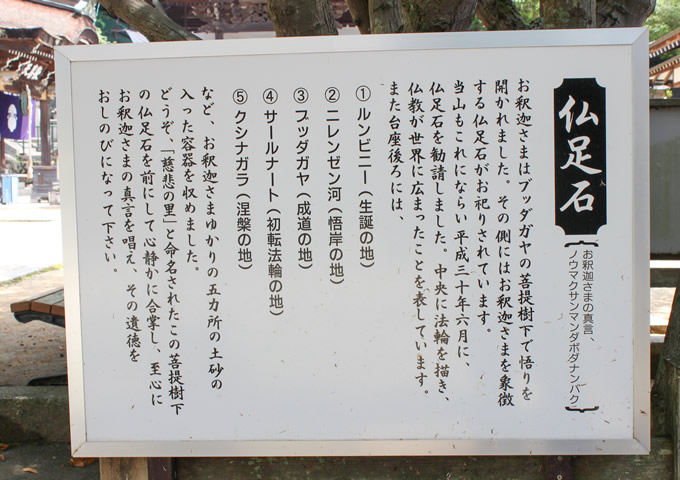 仏足石
お釈迦さまの真言、
ノウマクサンマンダボダナンバク
お釈迦さまはブッダガヤの菩提樹下で悟りを
開かれました。その側にはお釈迦さまを象徴
する仏足石がお祀りされています。
当山もこれにならい平成三十年六月に、
仏足石を勧請しました。中央に法輪を描き、
仏教が世界に広まったことを表しています。
また台座後ろには、
①ルンビニー(生誕の地)
②ニレンゼン河(悟岸の地)
③ブッダガヤ(成道の地)
④サールナート(初転法輪の地)
⑤クシナガラ(涅槃の地)
など、お釈迦さまゆかりの五カ所の土砂の
入った容器を収めました。
どうぞ、「慈悲の里」と命名されたこの菩提樹下
の仏足石を前にして心静かに合掌し、至心に
お釈迦さまの真言を唱え、その遺徳を
おしのびになって下さい。